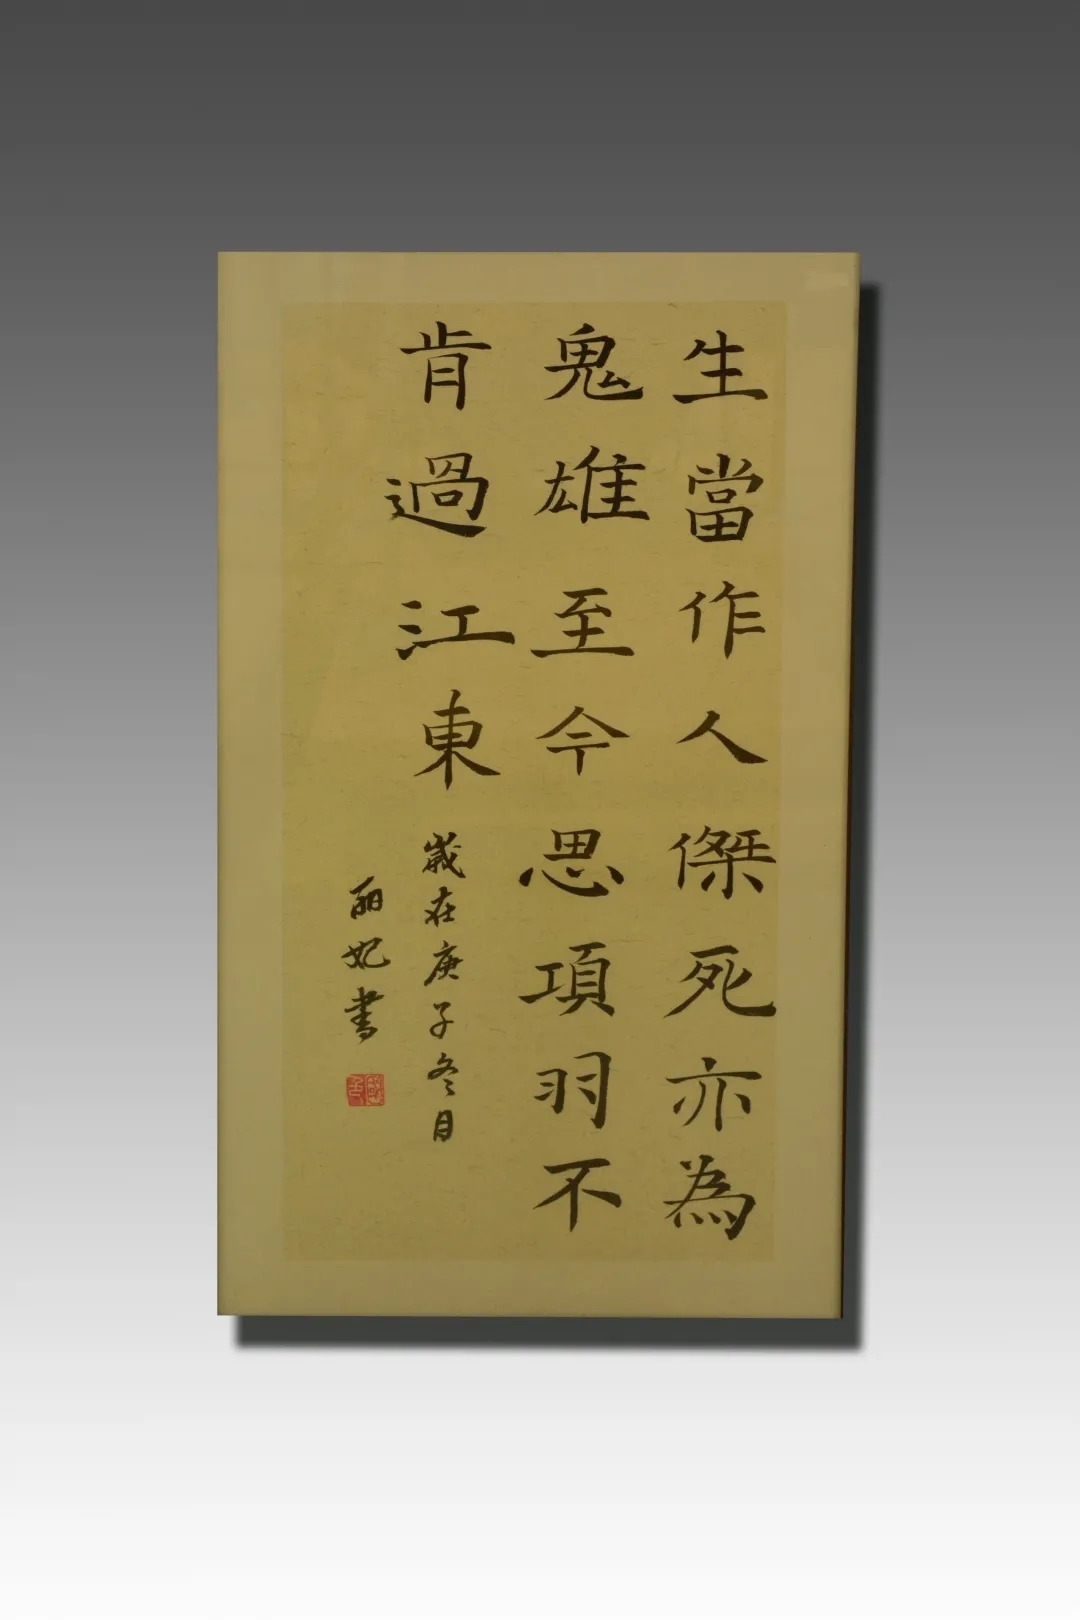 生當作人傑死亦為
鬼雄至今思項羽不
肯過江東
歲在庚子冬月
丽妃書